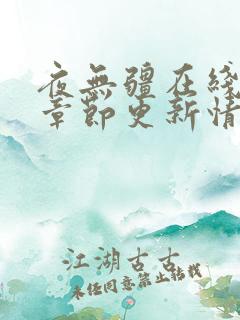 夜無疆在綫
章節更新情
江湖古古
未经同意禁止转载